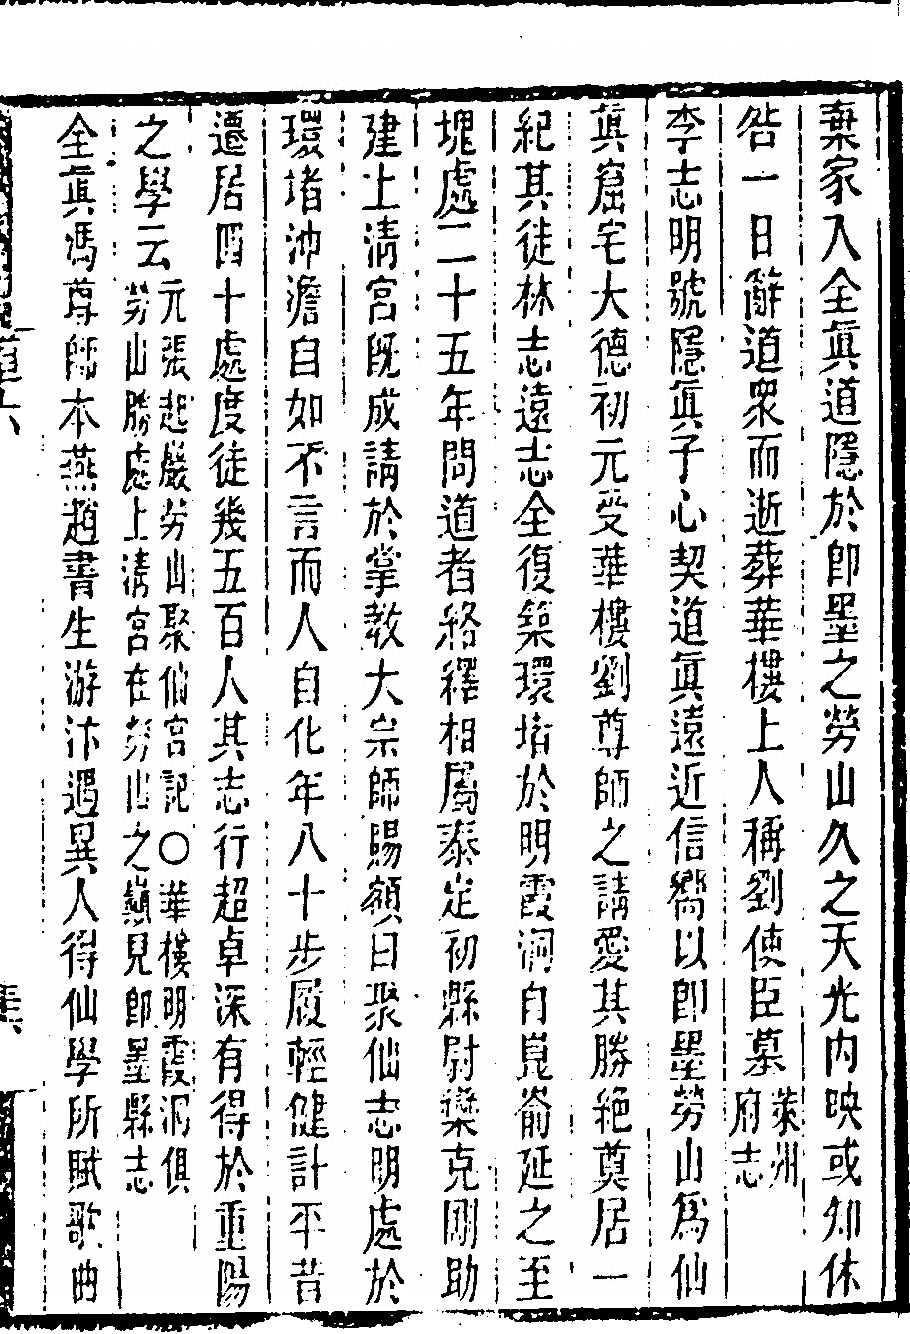 棄家入全眞道隱於卽墨之勞山久之天光內映或知休
咎一日辭道衆而逝葬華樓上人稱劉使臣墓萊州府志
李志明號隱眞子心契道眞遠近信嚮以卽墨勞山爲仙
眞窟宅大德初元受華樓劉尊師之請愛其勝絕奠居一
紀其徒林志遠志全復築環堵於明霞洞自崑嵛延之至
塊處二十五年問道者絡繹相屬泰定初縣尉欒克剛助
建上淸宮旣成請於掌教大宗師賜額曰聚仙志明處於
環堵沖澹自如不言而人自化年八十步履輕健計平昔
遷居四十處度徒幾五百人其志行超卓深有得於重陽
之學云元張起巖勞山聚仙宮記○華樓明霞洞俱勞山勝處上淸宮在勞山之巔見卽墨縣志
全眞馮尊師本燕趙書生游汴遇異人得仙學所賦歌曲